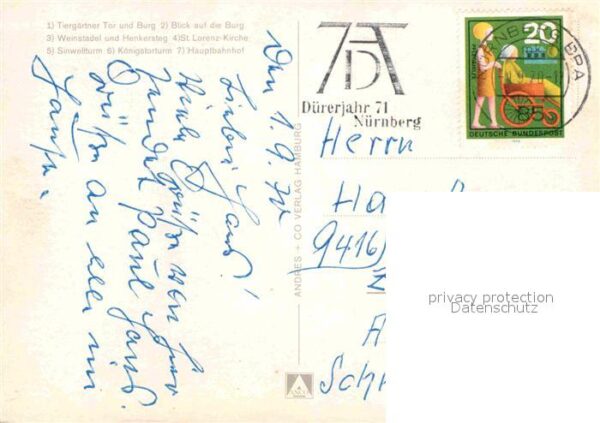 1) Tiergärtner Tor und Burg 2) Blick auf die Burg
3) Weinstadel und Henkersteg 4) St. Lorenz-Kirche
5) Sinwellturm 6) Königstorturm 7) Hauptbahnhof
Den 1.9.70
Lieber Hans!
Viele Grüße von
Paul
Grüße an alle im
Hause.
ANDRES + CO VERLAG HAMBURG
Dürerjahr 71
Nürnberg
20
DEUTSCHE BUNDESPOST
Herrn
Ha
9416
A
Sch
privacy protection
Datenschutz